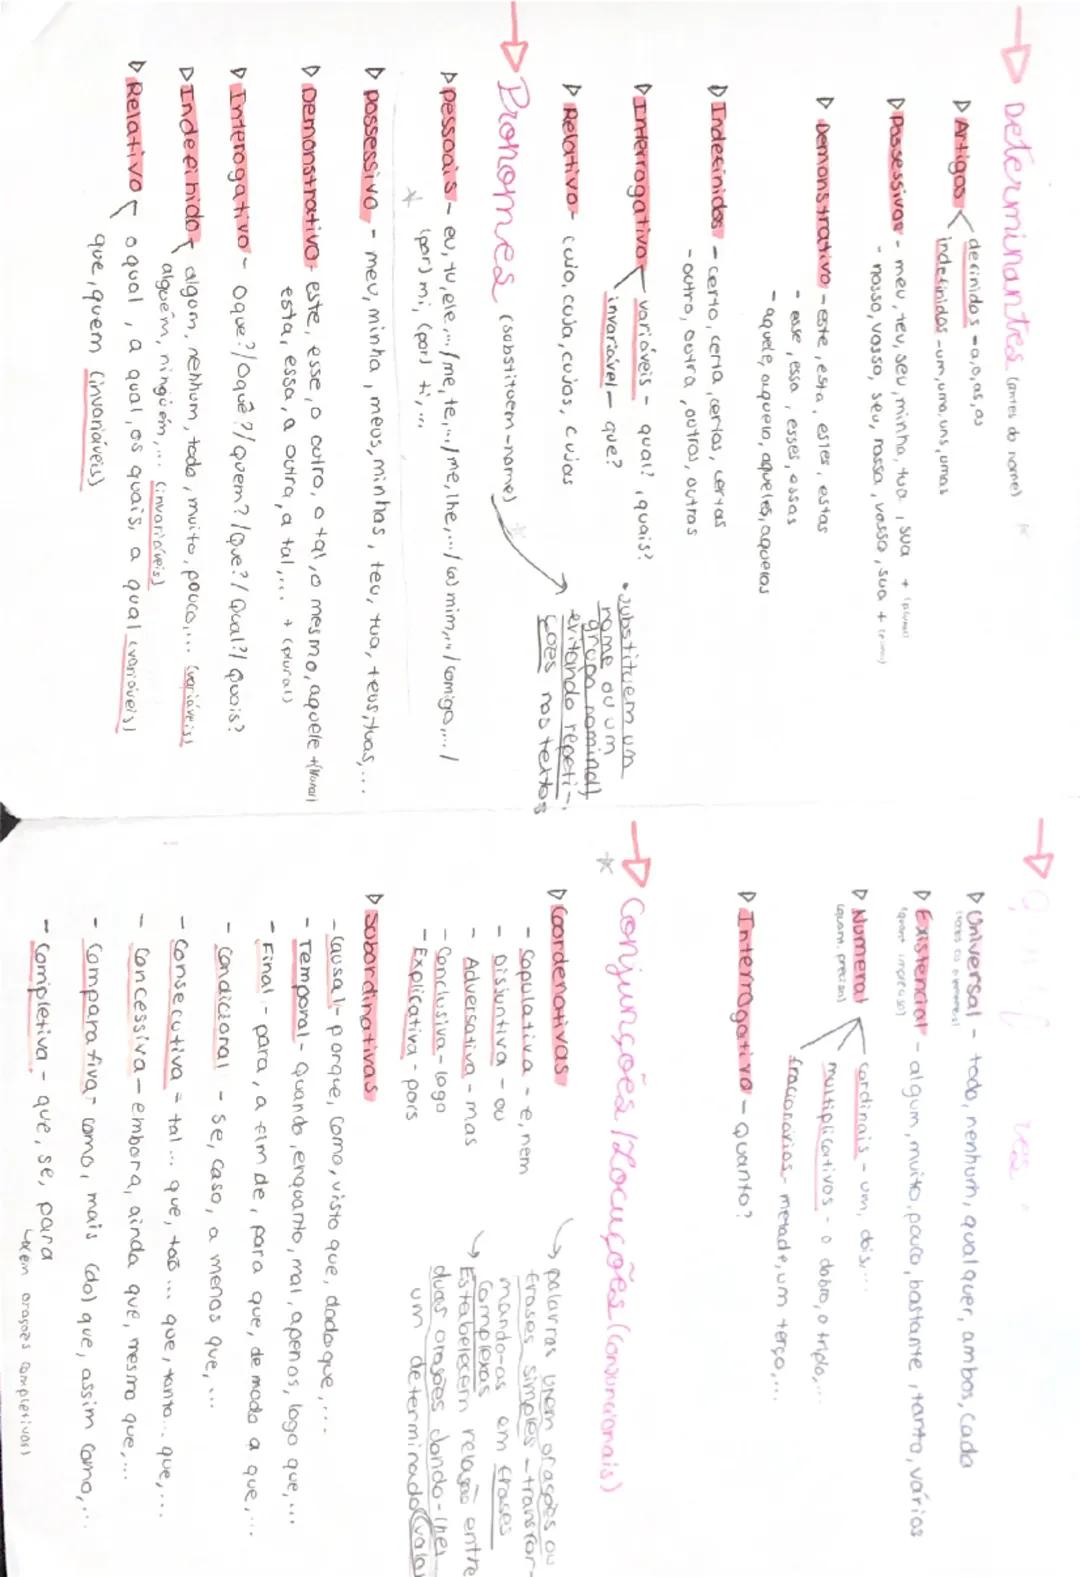 → Determinantes (antes do nome) *
▷ Artigos
definidos - a, o, as, os
indefinidos - um, uma, uns, umas
▷ Possessivos - meu, teu, seu, minha, tua, sua + (plural)
- nosso, vosso, seu, nossa, vossa, sua +
▷ Demonstrativo - este, esta, estes, estas
- esse, essa, esses, essas
- aquele, aquela, aqueles, aquelas
▷ Indefinidos - certo, certa, certos, certas
- outro, outra, outros, outras
▷ Interrogativo
variáveis - qual?, quais?
invariável - que?
▷ Relativo - cujo, cuja, cujos, cujas
→ Pronomes (substituem-nome) *
• Substituem um
nome ou um
grupo nominal
evitando repeti-
ções nos textos
▷ pessoais - eu, tu, ele,.../me, te,.../me, lhe,.../(a) mim,.../comigo,.../
* (por) mi, (por) ti,...
▷ possessivo - meu, minha, meus, minhas, teu, tua, teus, tuas,...
▷ Demonstrativo - este, esse, o outro, o tal, o mesmo, aquele +(plural)
esta, essa, a outra, a tal,... + (plural)
▷ Interogativo - oque?/oquê?/quem?/que?/Qual?/Quais?
▷ Indefinido
algum, nenhum, todo, muito, pouco,... (variáveis)
alguém, ninguém,... (invariáveis)
▷ Relativo
o qual, a qual, os quais, a qual (variáveis)
que, quem (invariáveis)
▷ Universal - todo, nenhum, qualquer, ambos, cada
▷ Existencial - algum, muito, pouco, bastante, tanto, vários
(quant. impreciso)
▷ Numeral
(quant. preciso)
cardinais - um, dois,...
multiplicativos - o dobro, o triplo,...
fracionários - metade, um terço,...
▷ Interrogativo - quanto?
→ Conjunções/Locuções (conjuncionais)
*
▷ Coordenativas
- Copulativa - e, nem
- Disjuntiva - ou
- Adversativa - mas
- Conclusiva - logo
- Explicativa - pois
↳ palavras unem orações ou
frases simples - transfor-
mando-as em frases
complexas
↳ Estabelecem relação entre
duas orações dando-lhes
um determinado valor
▷ Subordinativas
- Causal - porque, como, visto que, dado que,...
- Temporal - quando, enquanto, mal, apenas, logo que,...
- Final - para, a fim de, para que, de modo a que,...
- condicional - se, caso, a menos que,...
- Consecutiva - tal... que, tão... que, tanto... que,...
- concessiva - embora, ainda que, mesmo que,...
- Comparativa - como, mais (do) que, assim como,...
- Completiva - que, se, para
orações completivas)